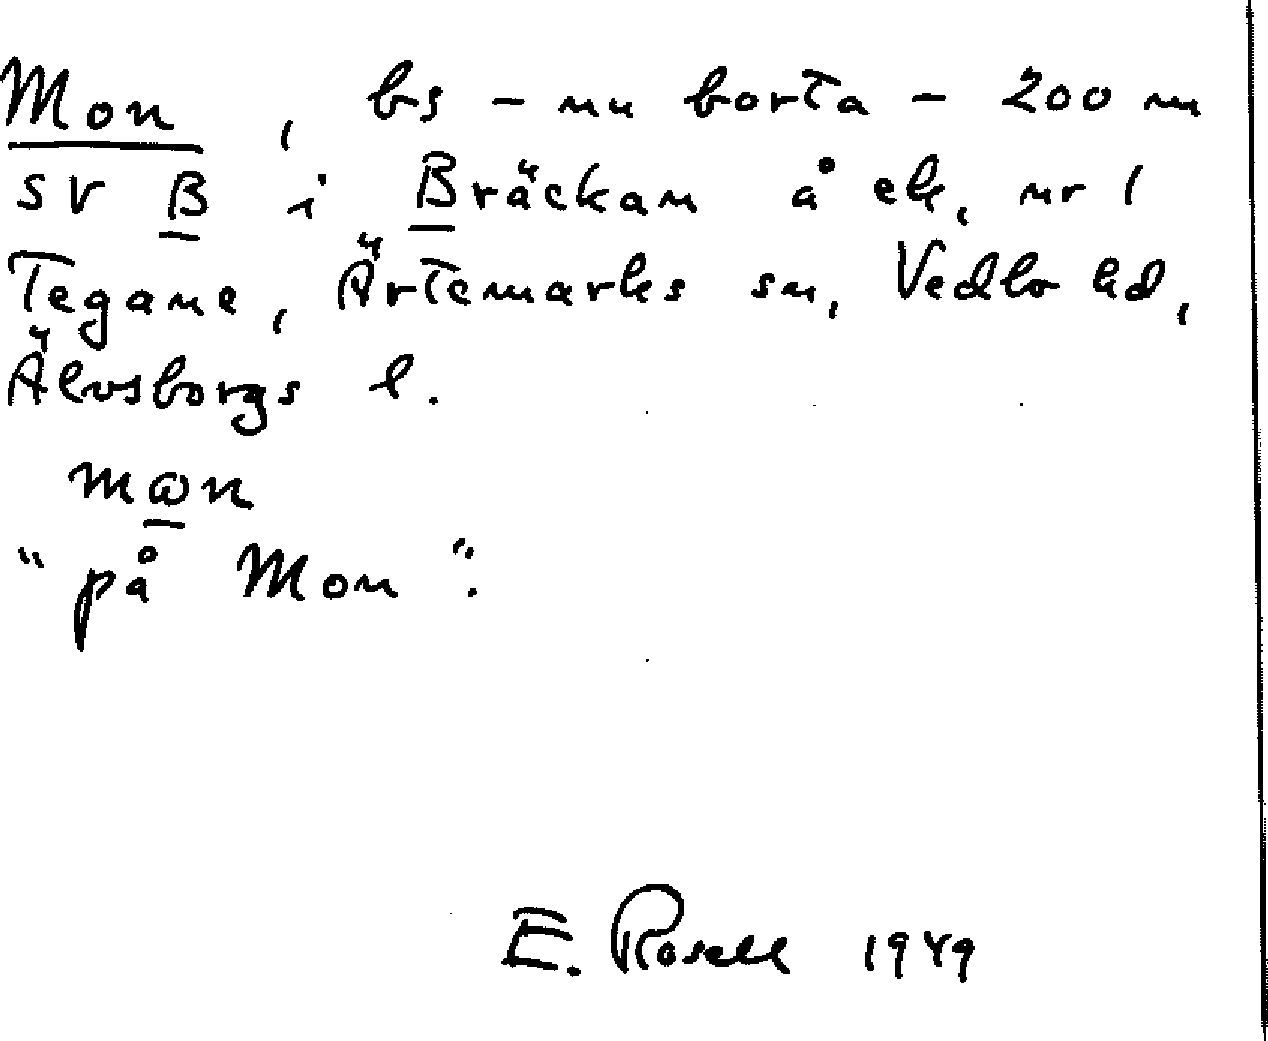 Mon, bs – nu borta – 200 m
SV B i Bräckan å ek. nr 1
Tegane, Ärtemarks sn, Vedbo hd,
Älvsborgs l.
"på Mon".
E. Rosell 1949